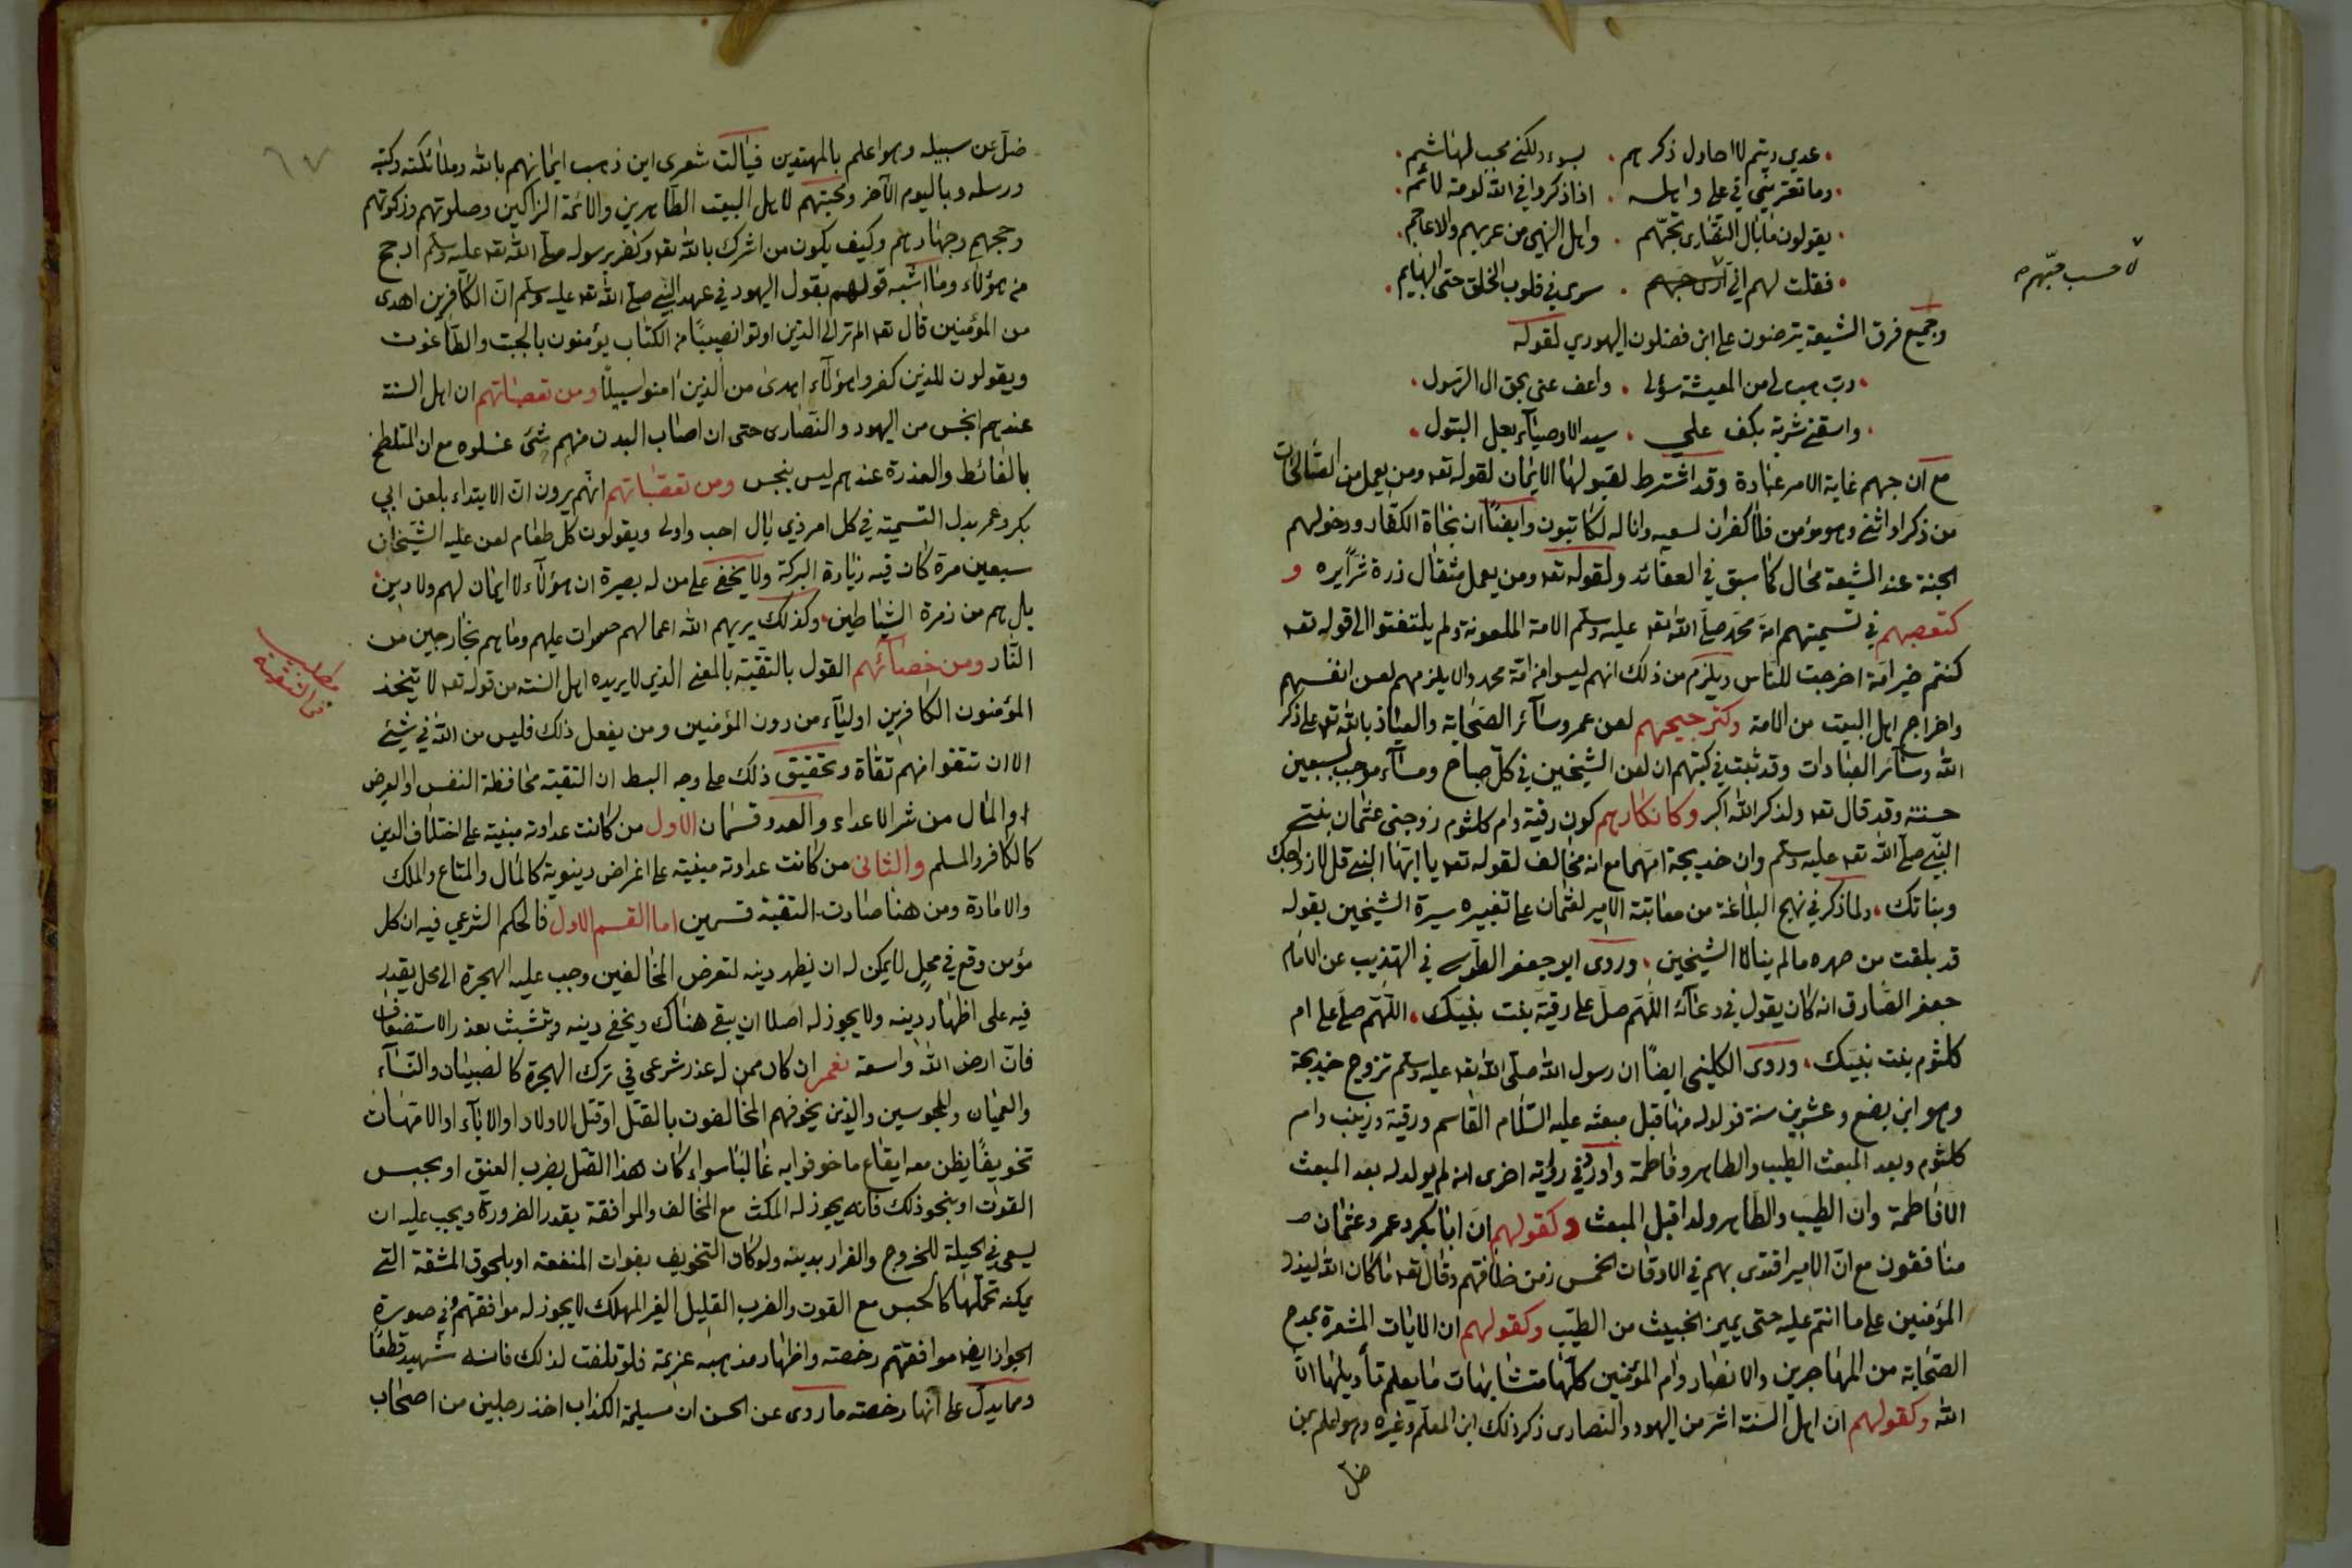 عدي وتيم لا احاول ذكرهم . بسوء ولكني محب لهاشم
وما تعتريني في علي واهله . اذا ذكروا في الله لومة لائم
يقولون ما بال النصارى تحبهم . واهل النهى من عربهم والاعاجم
فقلت لهم اني لاحسب حبهم . سرى في قلوب الخلق حتى البهايم
لاحسب حبهم
وجميع فرق الشيعة يترضون على ابن فضلون اليهودي لقوله
رب هب لي من المعيشة سؤلي . واعف عني بحق ال الرسول
واسقني شربة بكف علي . سيد الاوصيآء بعل البتول
مع ان حبهم غاية الامر عبادة وقد اشترط لقبولها الايمان لقوله تعه ومن يعمل من الصالحات
من ذكر او انثى وهو مؤمن فلا كفران لسعيه وانا له لكاتبون وايضًا ان نجاة الكفار ودخولهم
الجنة عند الشيعة محال كما سبق في العقائد ولقوله تعه ومن يعمل مثقال ذرة شرًا يره و
كتعصبهم في تسميتهم امة محمد صلى الله تعه عليه وسلم الامة الملعونة ولم يلتفتوا الى قوله تعه
كنتم خير امة اخرجت للناس ويلزم من ذلك انهم ليسوا من امة محمد والا يلزمهم لعن انفسهم
واخراج اهل البيت من الامة وكترجيحهم لعن عمر وسائر الصحابة والعياذ بالله تعه على ذكر
الله وسائر العبادات وقد ثبت في كتبهم ان لعن الشيخين في كل صباح ومسآء موجب لسبعين
حسنة وقد قال تعه ولذكر الله اكبر وكانكارهم كون رقية وام كلثوم زوجتي عثمان بنتي
النبي صلى الله تعه عليه وسلم وان خديجة امهما مع انه مخالف لقوله تعه يا ايها النبي قل لازواجك
وبناتك . ولما ذكر في نهج البلاغة من معاتبة الامير لعثمان على تغييره سيرة الشيخين بقوله
قد بلغت من صهره ما لم ينالا الشيخين . وروى ابو جعفر الطوسي في التهذيب عن الامام
جعفر الصادق انه كان يقول في دعائه اللهم صل على رقية بنت نبيك . اللهم صل على ام
كلثوم بنت نبيك . وروى الكليني ايضًا ان رسول الله صلى الله تعه عليه وسلم تزوج خديجة
وهو ابن بضع وعشرين سنة فولد له منها قبل مبعثه عليه السلام القاسم ورقية وزينب وام
كلثوم وبعد المبعث الطيب والطاهر وفاطمة واورد في رواية اخرى انه لم يولد له بعد المبعث
الا فاطمة وان الطيب والطاهر ولدا قبل المبعث وكقولهم ان ابا بكر وعمر وعثمان
منافقون مع ان الامير اقتدى بهم في الاوقات الخمس زمن خلافتهم وقال تعه ما كان الله ليذر
المؤمنين على ما انتم عليه حتى يميز الخبيث من الطيب وكقولهم ان الايات المشعرة بمدح
الصحابة من المهاجرين والانصار وام المؤمنين كلها متشابهات ما يعلم تأويلها الا
الله وكقولهم ان اهل السنة اشر من اليهود والنصارى ذكر ذلك ابن المعلم وغيره وهو اعلم بمن
ضل
٦٧
ضل عن سبيله وهو اعلم بالمهتدين فيا ليت شعرى اين ذهب ايمانهم بالله وملائكته وكتبه
ورسله وباليوم الآخر ومحبتهم لاهل البيت الطاهرين والائمة الزاكين وصلوتهم وزكوتهم
وحجهم وجهادهم وكيف يكون من اشرك بالله تعه وكفر برسوله صلى الله تعه عليه وسلم ارجح
من هؤلاء وما اشبه قولهم بقول اليهود في عهد النبي صلى الله تعه عليه وسلم ان الكافرين اهدى
من المؤمنين قال تعه الم تر الى الذين اوتوا نصيبًا من الكتاب يؤمنون بالجبت والطاغوت
ويقولون للذين كفروا هؤلآء اهدى من الذين امنوا سبيلًا ومن تعصباتهم ان اهل السنة
عندهم انجس من اليهود والنصارى حتى ان اصاب البدن منهم شئ غسلوه مع ان المتلطخ
بالغائط والعذرة عندهم ليس بنجس ومن تعصباتهم انهم يرون ان الابتداء بلعن ابي
بكر وعمر بدل التسمية في كل امر ذي بال احب واولى ويقولون كل طعام لعن عليه الشيخان
سبعين مرة كان فيه زيادة البركة ولا يخفى على من له بصيرة ان هؤلآء لا ايمان لهم ولا دين
بل هم من زمرة الشياطين . وكذلك يريهم الله اعمالهم حسرات عليهم وما هم بخارجين من
النار ومن خصآئهم القول بالتقية بالمعنى الذي لا يريده اهل السنة من قوله تعه لا يتخذ
مطلب
في التقية
المؤمنون الكافرين اوليآء من دون المؤمنين ومن يفعل ذلك فليس من الله في شئ
الا ان تتقوا منهم تقاة وتحقيق ذلك على وجه البسط ان التقية محافظة النفس او العرض
او المال من شر الاعداء والعدو قسمان الاول من كانت عداوته مبنية على اختلاف الدين
كالكافر والمسلم والثاني من كانت عداوته مبنية على اغراض دنيوية كالمال والمتاع والملك
والامارة ومن هنا صارت التقية قسمين اما القسم الاول فالحكم الشرعي فيه ان كل
مؤمن وقع في محل لا يمكن له ان يظهر دينه لتعرض المخالفين وجب عليه الهجرة الى محل يقدر
فيه على اظهار دينه ولا يجوز له اصلا ان يبقى هناك ويخفي دينه ويتشبث بعذر الاستضعاف
فان ارض الله واسعة نعم ان كان ممن له عذر شرعي في ترك الهجرة كالصبيان والنسآء
والعميان والمحبوسين والذين يخوفهم المخالفون بالقتل او قتل الاولاد او الابآء او الامهات
تخويفًا يظن معه ايقاع ما خوفوا به غالبًا سواء كان هذا القتل بضرب العنق او بحبس
القوت او بنحو ذلك فانه يجوز له المكث مع المخالف والموافقة بقدر الضرورة ويجب عليه ان
يسعى في الحيلة للخروج والفرار بدينه ولو كان التخويف بفوات المنفعة او بلحوق المشقة التي
يمكنه تحملها كالحبس مع القوت والضرب القليل الغير المهلك لا يجوز له موافقتهم وفي صورة
الجواز ايضه موافقتهم رخصة واظهار مذهبه عزيمة فلو تلفت لذلك فانه شهيد قطعًا
ومما يدل على انها رخصة ما روى عن الحسن ان مسيلمة الكذاب اخذ رجلين من اصحاب